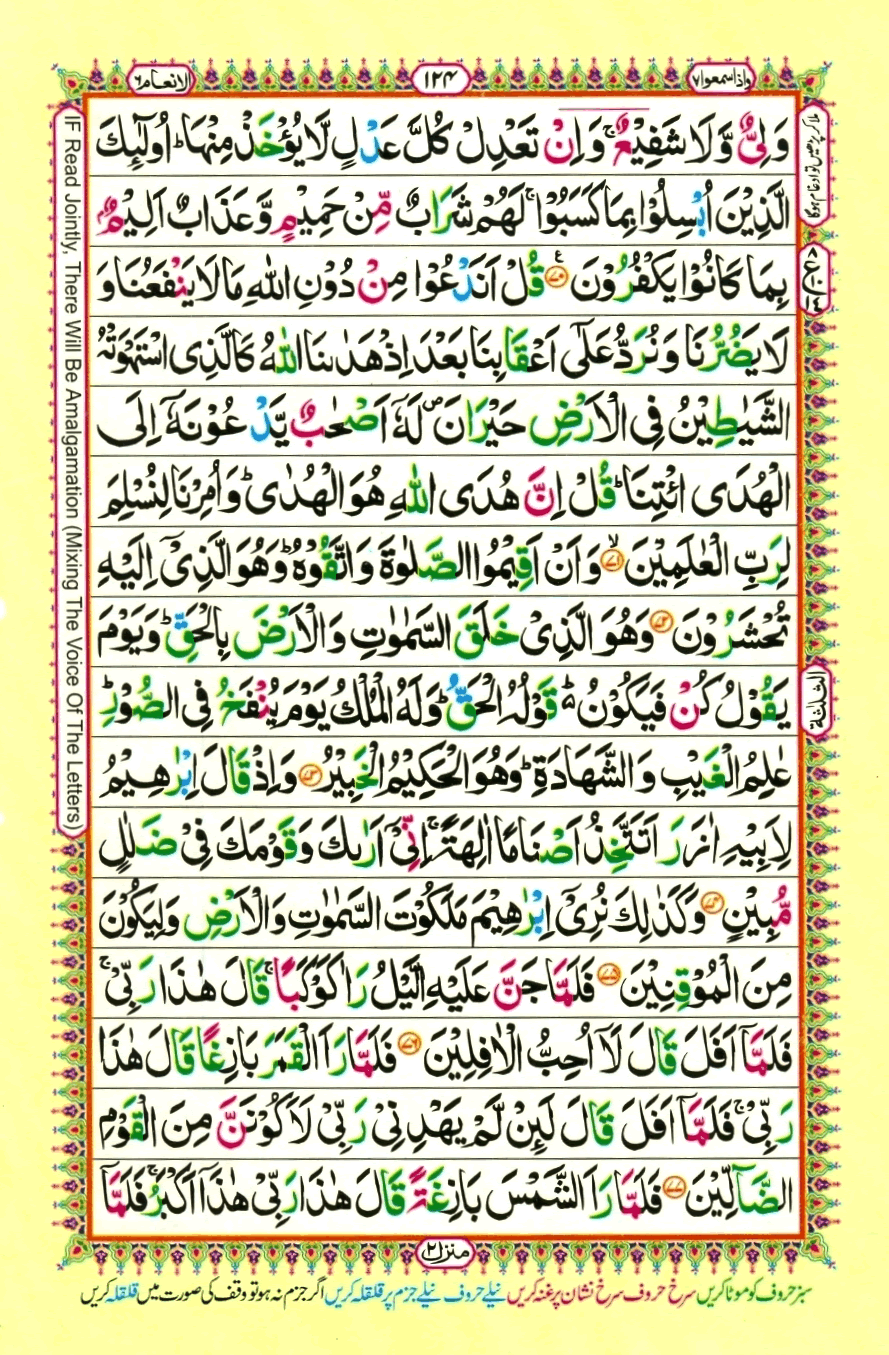 واذا سمعوا ٧
١٢٤
الانعام ٦
وَلِيٌّ وَّلَا شَفِيْعٌ ۚ وَاِنْ تَعْدِلْ كُلَّ عَدْلٍ لَّا يُؤْخَذْ مِنْهَا ؕ اُولٰٓئِكَ
الَّذِيْنَ اُبْسِلُوْا بِمَا كَسَبُوْا ۚ لَهُمْ شَرَابٌ مِّنْ حَمِيْمٍ وَّعَذَابٌ اَلِيْمٌۢ
بِمَا كَانُوْا يَكْفُرُوْنَ ﴿٧٠﴾ قُلْ اَنَدْعُوْا مِنْ دُوْنِ اللّٰهِ مَا لَا يَنْفَعُنَا وَ
لَا يَضُرُّنَا وَنُرَدُّ عَلٰٓى اَعْقَابِنَا بَعْدَ اِذْ هَدٰىنَا اللّٰهُ كَالَّذِى اسْتَهْوَتْهُ
الشَّيٰطِيْنُ فِى الْاَرْضِ حَيْرَانَ ۪ لَهٗۤ اَصْحٰبٌ يَّدْعُوْنَهٗۤ اِلَى
الْهُدَى ائْتِنَا ؕ قُلْ اِنَّ هُدَى اللّٰهِ هُوَ الْهُدٰى ؕ وَاُمِرْنَا لِنُسْلِمَ
لِرَبِّ الْعٰلَمِيْنَ ﴿٧١﴾ۙ وَاَنْ اَقِيْمُوا الصَّلٰوةَ وَاتَّقُوْهُ ؕ وَهُوَ الَّذِىْۤ اِلَيْهِ
تُحْشَرُوْنَ ﴿٧٢﴾ وَهُوَ الَّذِىْ خَلَقَ السَّمٰوٰتِ وَالْاَرْضَ بِالْحَقِّ ؕ وَيَوْمَ
يَقُوْلُ كُنْ فَيَكُوْنُ ؕ۬ قَوْلُهُ الْحَقُّ ؕ وَلَهُ الْمُلْكُ يَوْمَ يُنْفَخُ فِى الصُّوْرِ ؕ
عٰلِمُ الْغَيْبِ وَالشَّهَادَةِ ؕ وَهُوَ الْحَكِيْمُ الْخَبِيْرُ ﴿٧٣﴾ وَاِذْ قَالَ اِبْرٰهِيْمُ
لِاَبِيْهِ اٰزَرَ اَتَتَّخِذُ اَصْنَامًا اٰلِهَةً ۚ اِنِّىْۤ اَرٰىكَ وَقَوْمَكَ فِىْ ضَلٰلٍ
مُّبِيْنٍ ﴿٧٤﴾ وَكَذٰلِكَ نُرِىْۤ اِبْرٰهِيْمَ مَلَكُوْتَ السَّمٰوٰتِ وَالْاَرْضِ وَلِيَكُوْنَ
مِنَ الْمُوْقِنِيْنَ ﴿٧٥﴾ فَلَمَّا جَنَّ عَلَيْهِ الَّيْلُ رَاٰ كَوْكَبًا ۚ قَالَ هٰذَا رَبِّىْ ۚ
فَلَمَّاۤ اَفَلَ قَالَ لَاۤ اُحِبُّ الْاٰفِلِيْنَ ﴿٧٦﴾ فَلَمَّا رَاَ الْقَمَرَ بَازِغًا قَالَ هٰذَا
رَبِّىْ ۚ فَلَمَّاۤ اَفَلَ قَالَ لَئِنْ لَّمْ يَهْدِنِىْ رَبِّىْ لَاَكُوْنَنَّ مِنَ الْقَوْمِ
الضَّآلِّيْنَ ﴿٧٧﴾ فَلَمَّا رَاَ الشَّمْسَ بَازِغَةً قَالَ هٰذَا رَبِّىْ هٰذَاۤ اَكْبَرُ ۚ فَلَمَّاۤ
ملا کر پڑھیں تو ادغام ہوگا
الثلثة
IF Read Jointly, There Will Be Amalgamation (Mixing The Voice Of The Letters)
منزل ٢
سبز حروف کو موٹا کریں سرخ حروف سرخ نشان پر غنہ کریں نیلے حروف نیلے جزم پر قلقلہ کریں اگر جزم نہ ہو تو وقف کی صورت میں قلقلہ کریں